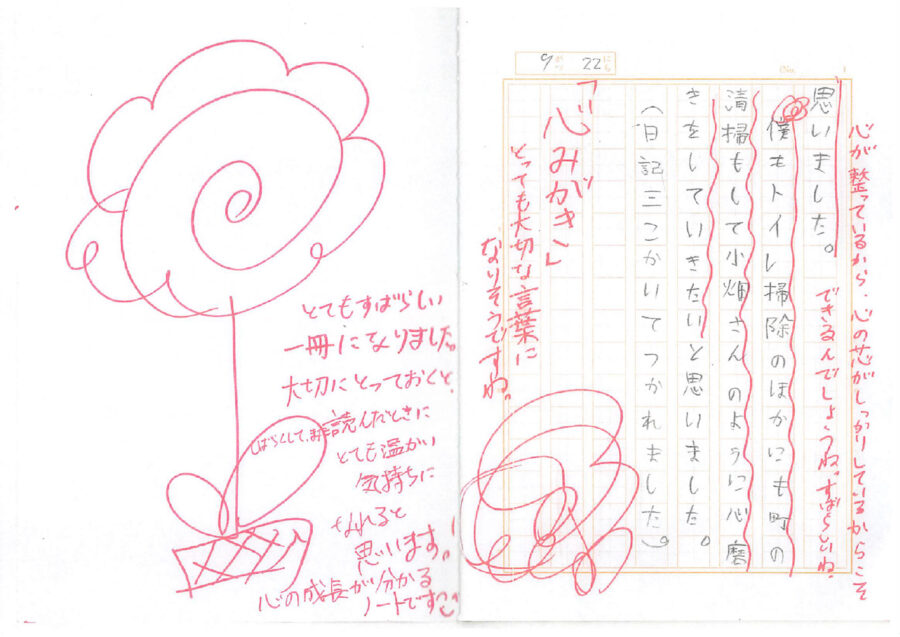 9 がつ 22 にち
No. 1
心が整っているから、心の芯がしっかりしているからこそ
できるんでしょうね。すばらしいね。
思いました。
僕もトイレ掃除のほかにも町の
清掃もして小畑さんのように心磨
きをしていきたいと思いました。
（日記三こかいてつかれました）。
「心みがき」
とっても大切な言葉に
なりそうですね。
とてもすばらしい
一冊になりました。
大切にとっておくと、
しばらくして、また読んだときに
とても温かい
気持ちに
なれると
思います。！
心の成長が分かる
ノートです